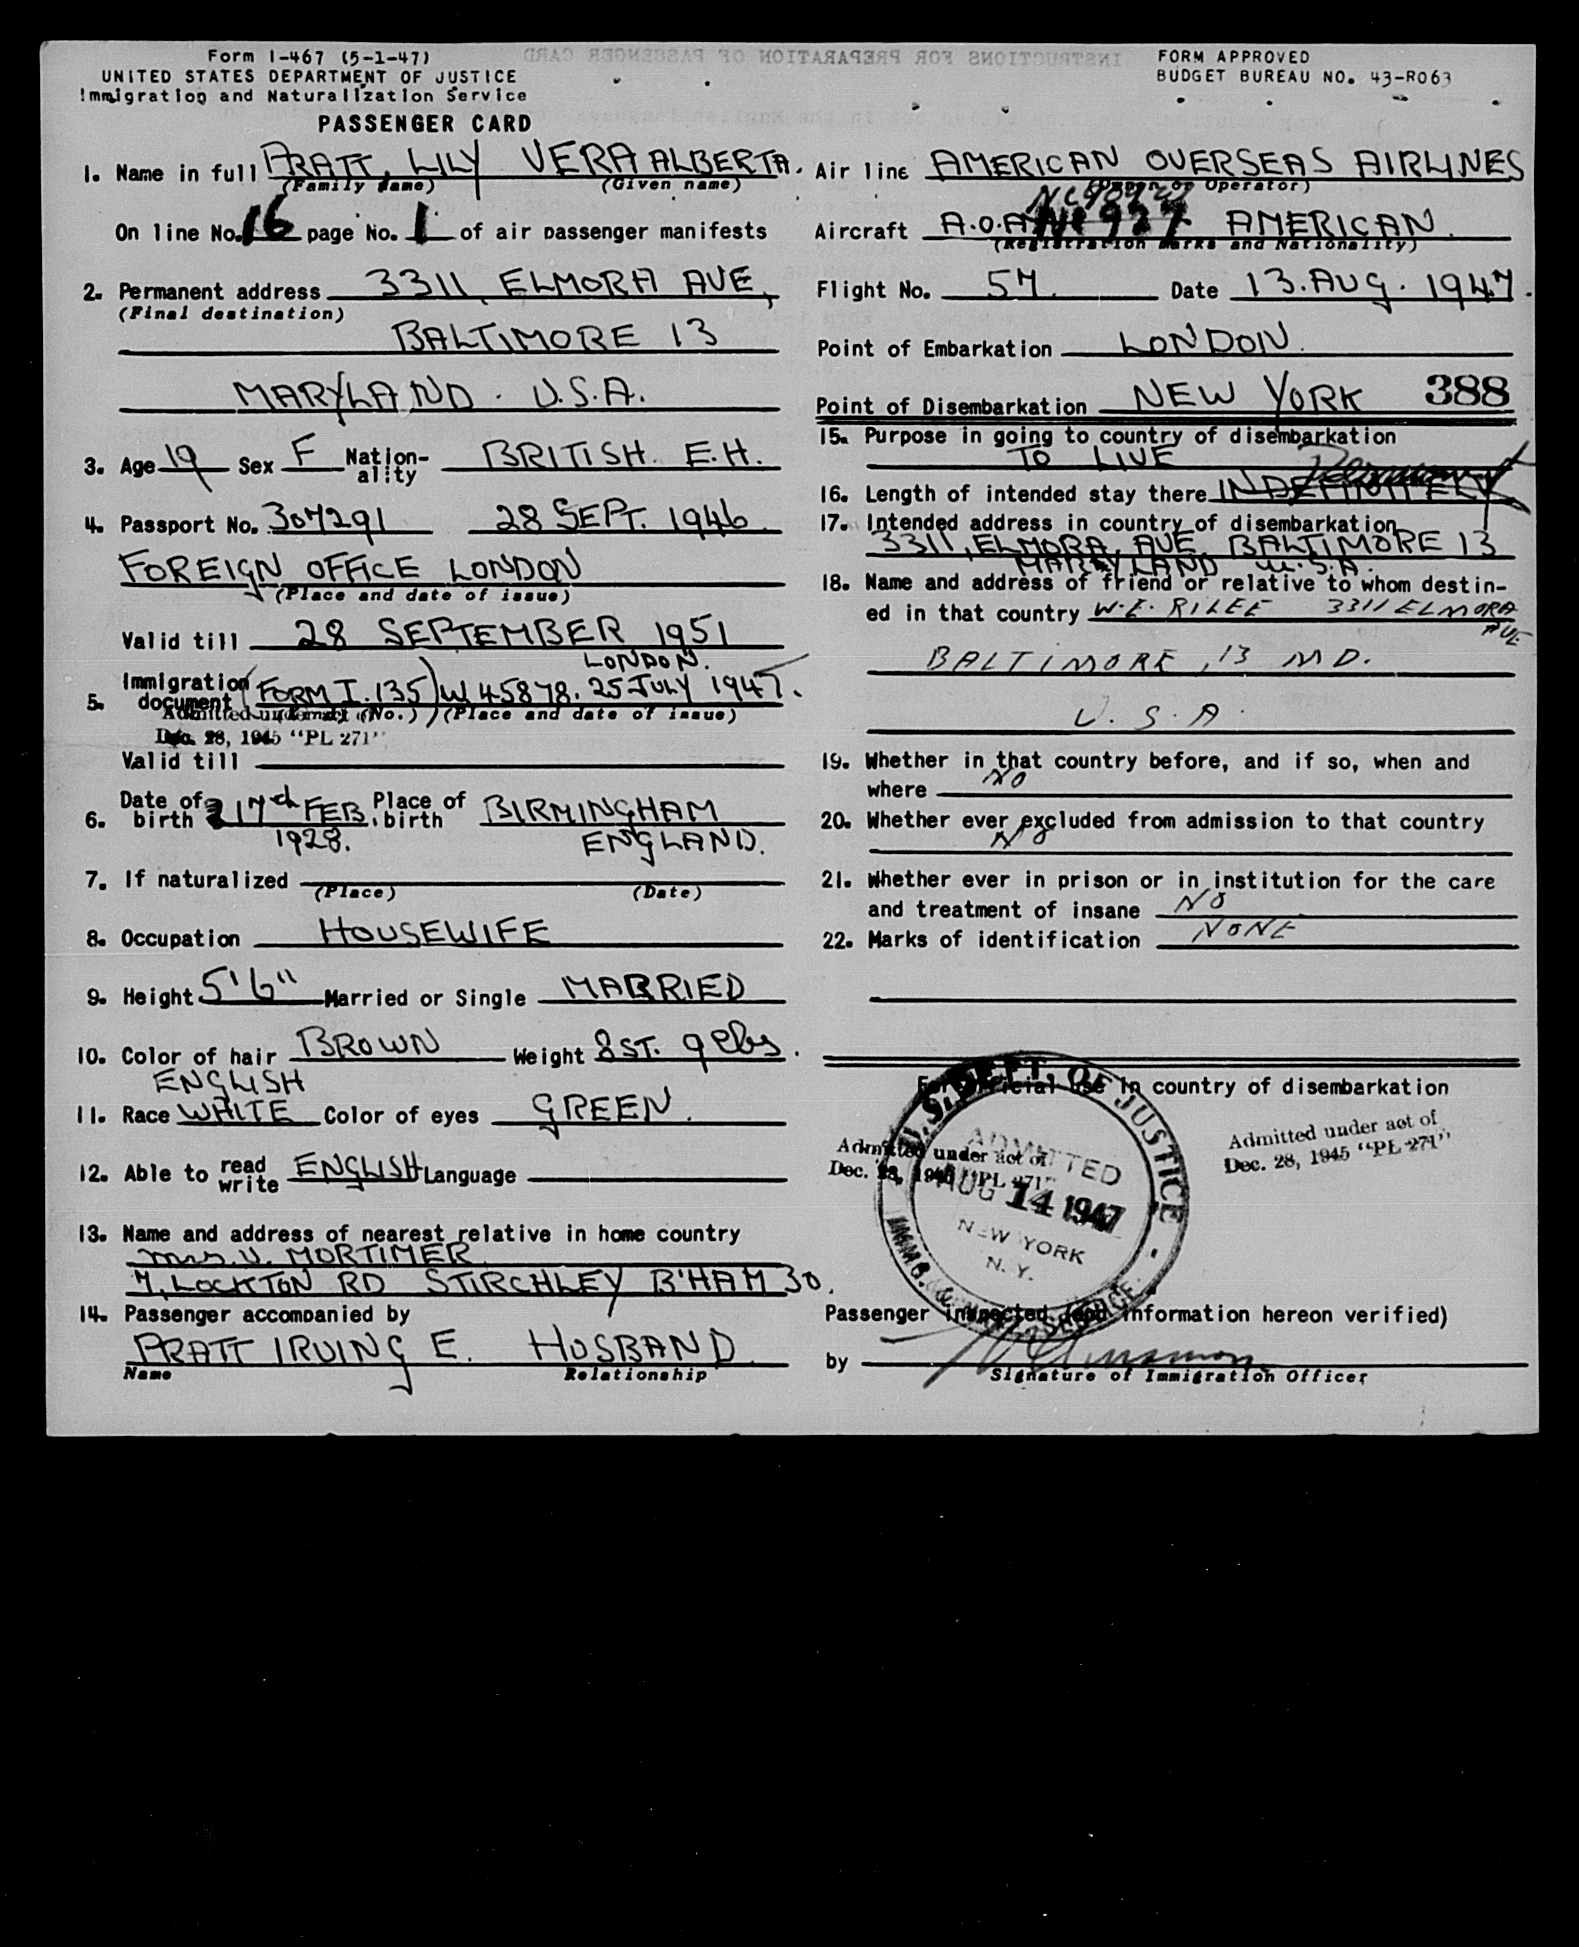 Form I-467 (5-1-47)
UNITED STATES DEPARTMENT OF JUSTICE
Immigration and Naturalization Service
PASSENGER CARD
INSTRUCTIONS FOR PREPARATION OF PASSENGER CARD
FORM APPROVED
BUDGET BUREAU NO. 43-R063
1. Name in full PRATT, LILY VERA ALBERTA.
(Family name) (Given name)
On line No. 16 page No. 1 of air passenger manifests
2. Permanent address 3311, ELMORA AVE,
(Final destination)
BALTIMORE 13
MARYLAND. U.S.A.
3. Age 19 Sex F Nation-ality BRITISH. E.H.
4. Passport No. 307291 28 SEPT. 1946.
FOREIGN OFFICE LONDON
(Place and date of issue)
Valid till 28 SEPTEMBER 1951
LONDON.
5. Immigration document (FORM I.135) W.45878. 25 JULY 1947.
(No.) (Place and date of issue)
Admitted under act of
Dec. 28, 1945 "PL 271"
Valid till
6. Date of birth 17th FEB. 1928. Place of birth BIRMINGHAM
ENGLAND.
7. If naturalized
(Place) (Date)
8. Occupation HOUSEWIFE
9. Height 5'6" Married or Single MARRIED
10. Color of hair BROWN Weight 8 ST. 9 lbs.
ENGLISH
11. Race WHITE Color of eyes GREEN.
12. Able to read write ENGLISH Language
13. Name and address of nearest relative in home country
Mrs. V. MORTIMER
7, LOCKTON RD STIRCHLEY B'HAM 30.
14. Passenger accompanied by
PRATT IRVING E. HUSBAND.
Name Relationship
Air line AMERICAN OVERSEAS AIRLINES
(Owner or Operator)
Aircraft A.O.A. 927 AMERICAN.
(Registration marks and Nationality)
Flight No. 57. Date 13.AUG.1947.
Point of Embarkation LONDON.
Point of Disembarkation NEW YORK 388
15. Purpose in going to country of disembarkation
TO LIVE
16. Length of intended stay there INDEFINITELY
17. Intended address in country of disembarkation
3311, ELMORA, AVE, BALTIMORE 13
MARYLAND U.S.A.
18. Name and address of friend or relative to whom destin-
ed in that country W.E. RILEE 3311 ELMORA
AVE
BALTIMORE, 13 MD.
U.S.A.
19. Whether in that country before, and if so, when and
where NO
20. Whether ever excluded from admission to that country
NO
21. Whether ever in prison or in institution for the care
and treatment of insane NO
22. Marks of identification NONE
For official use in country of disembarkation
Admitted under act of
Dec. 28, 1945 "PL 271"
U.S. DEPT. OF JUSTICE
ADMITTED
AUG 14 1947
NEW YORK
N. Y.
IMMG. & SERVICE
Admitted under act of
Dec. 28, 1945 "PL 271"
Passenger inspected (and information hereon verified)
by
Signature of Immigration Officer